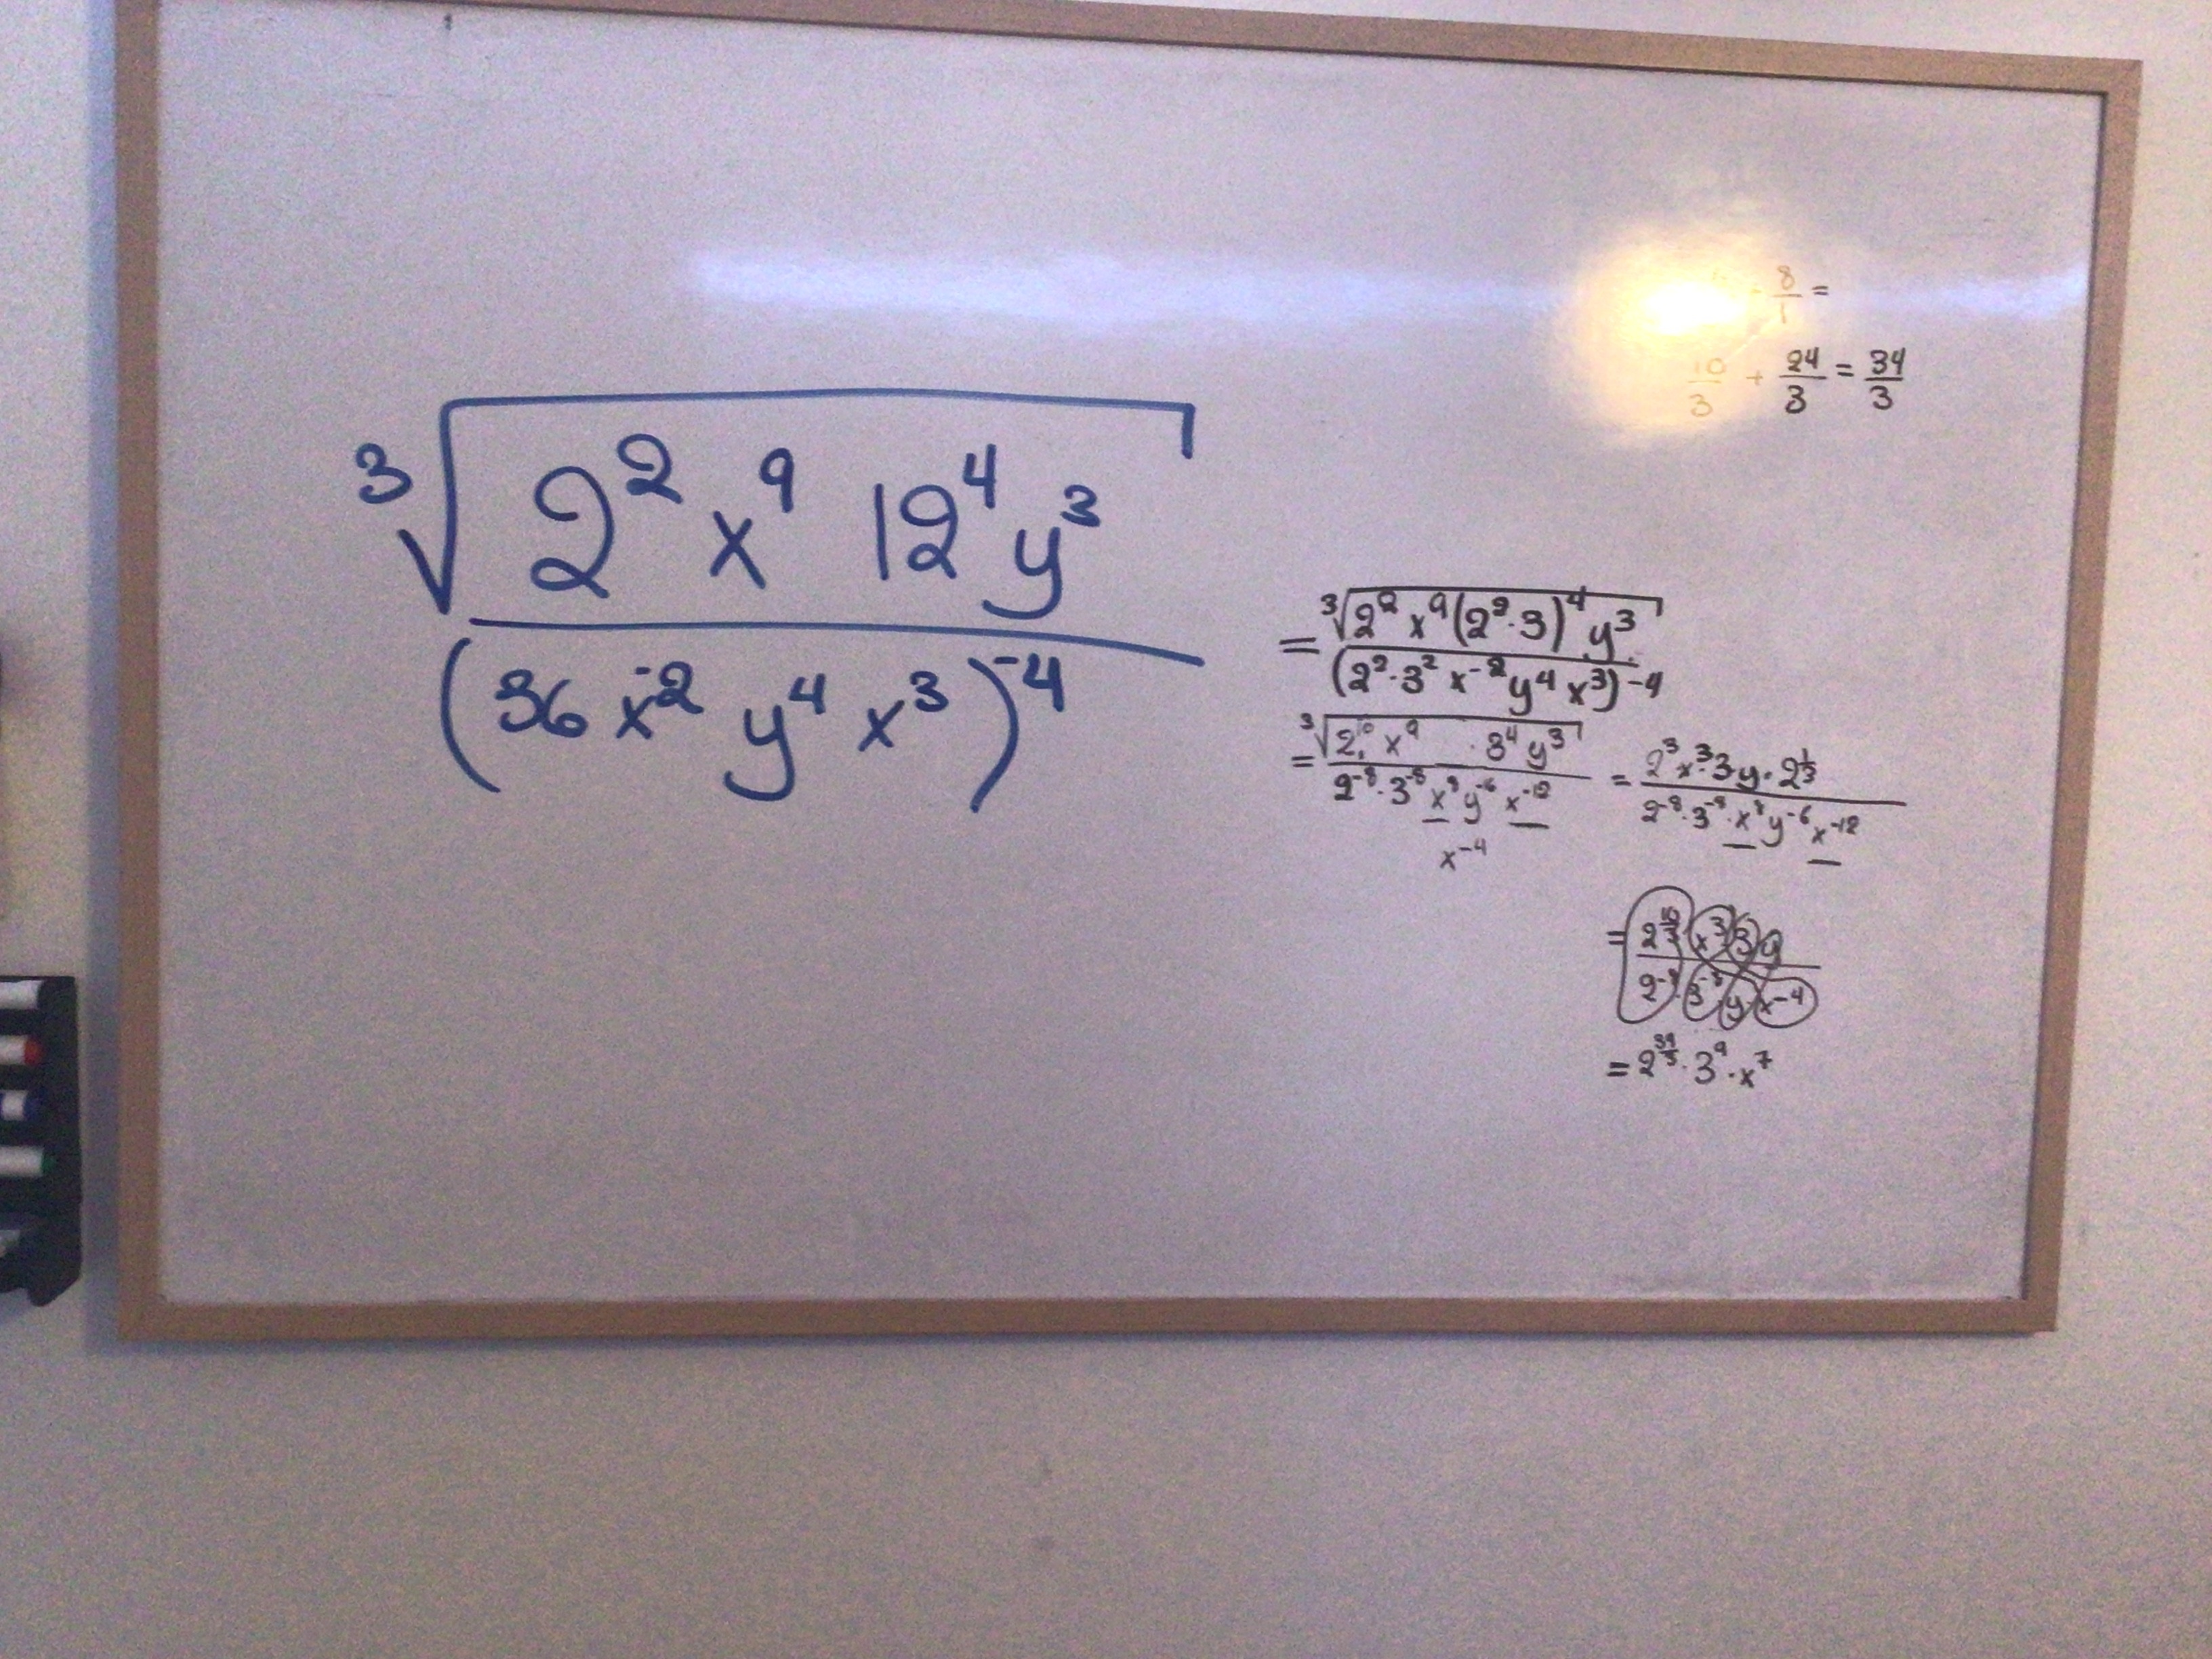 ∛(2² x⁹ 12⁴ y³)
(36 x⁻² y⁴ x³)⁻⁴
8/1 =
10/3 + 24/3 = 34/3
= ∛(2² x⁹ (2²·3)⁴ y³)
(2²·3² x⁻² y⁴ x³)⁻⁴
= ∛(2¹⁰ x⁹ · 3⁴ y³)
2⁻⁸·3⁻⁸ x⁸ y⁻⁶ x⁻¹²
x⁻⁴
= 2³ x³·3y·2^(1/3)
2⁻⁸·3⁻⁸·x⁸ y⁻⁶ x⁻¹²
= 2^(10/3) x³ 3 y
2⁻⁸ · 3⁻⁸ y x⁻⁴
= 2^(34/3) · 3⁹ · x⁷